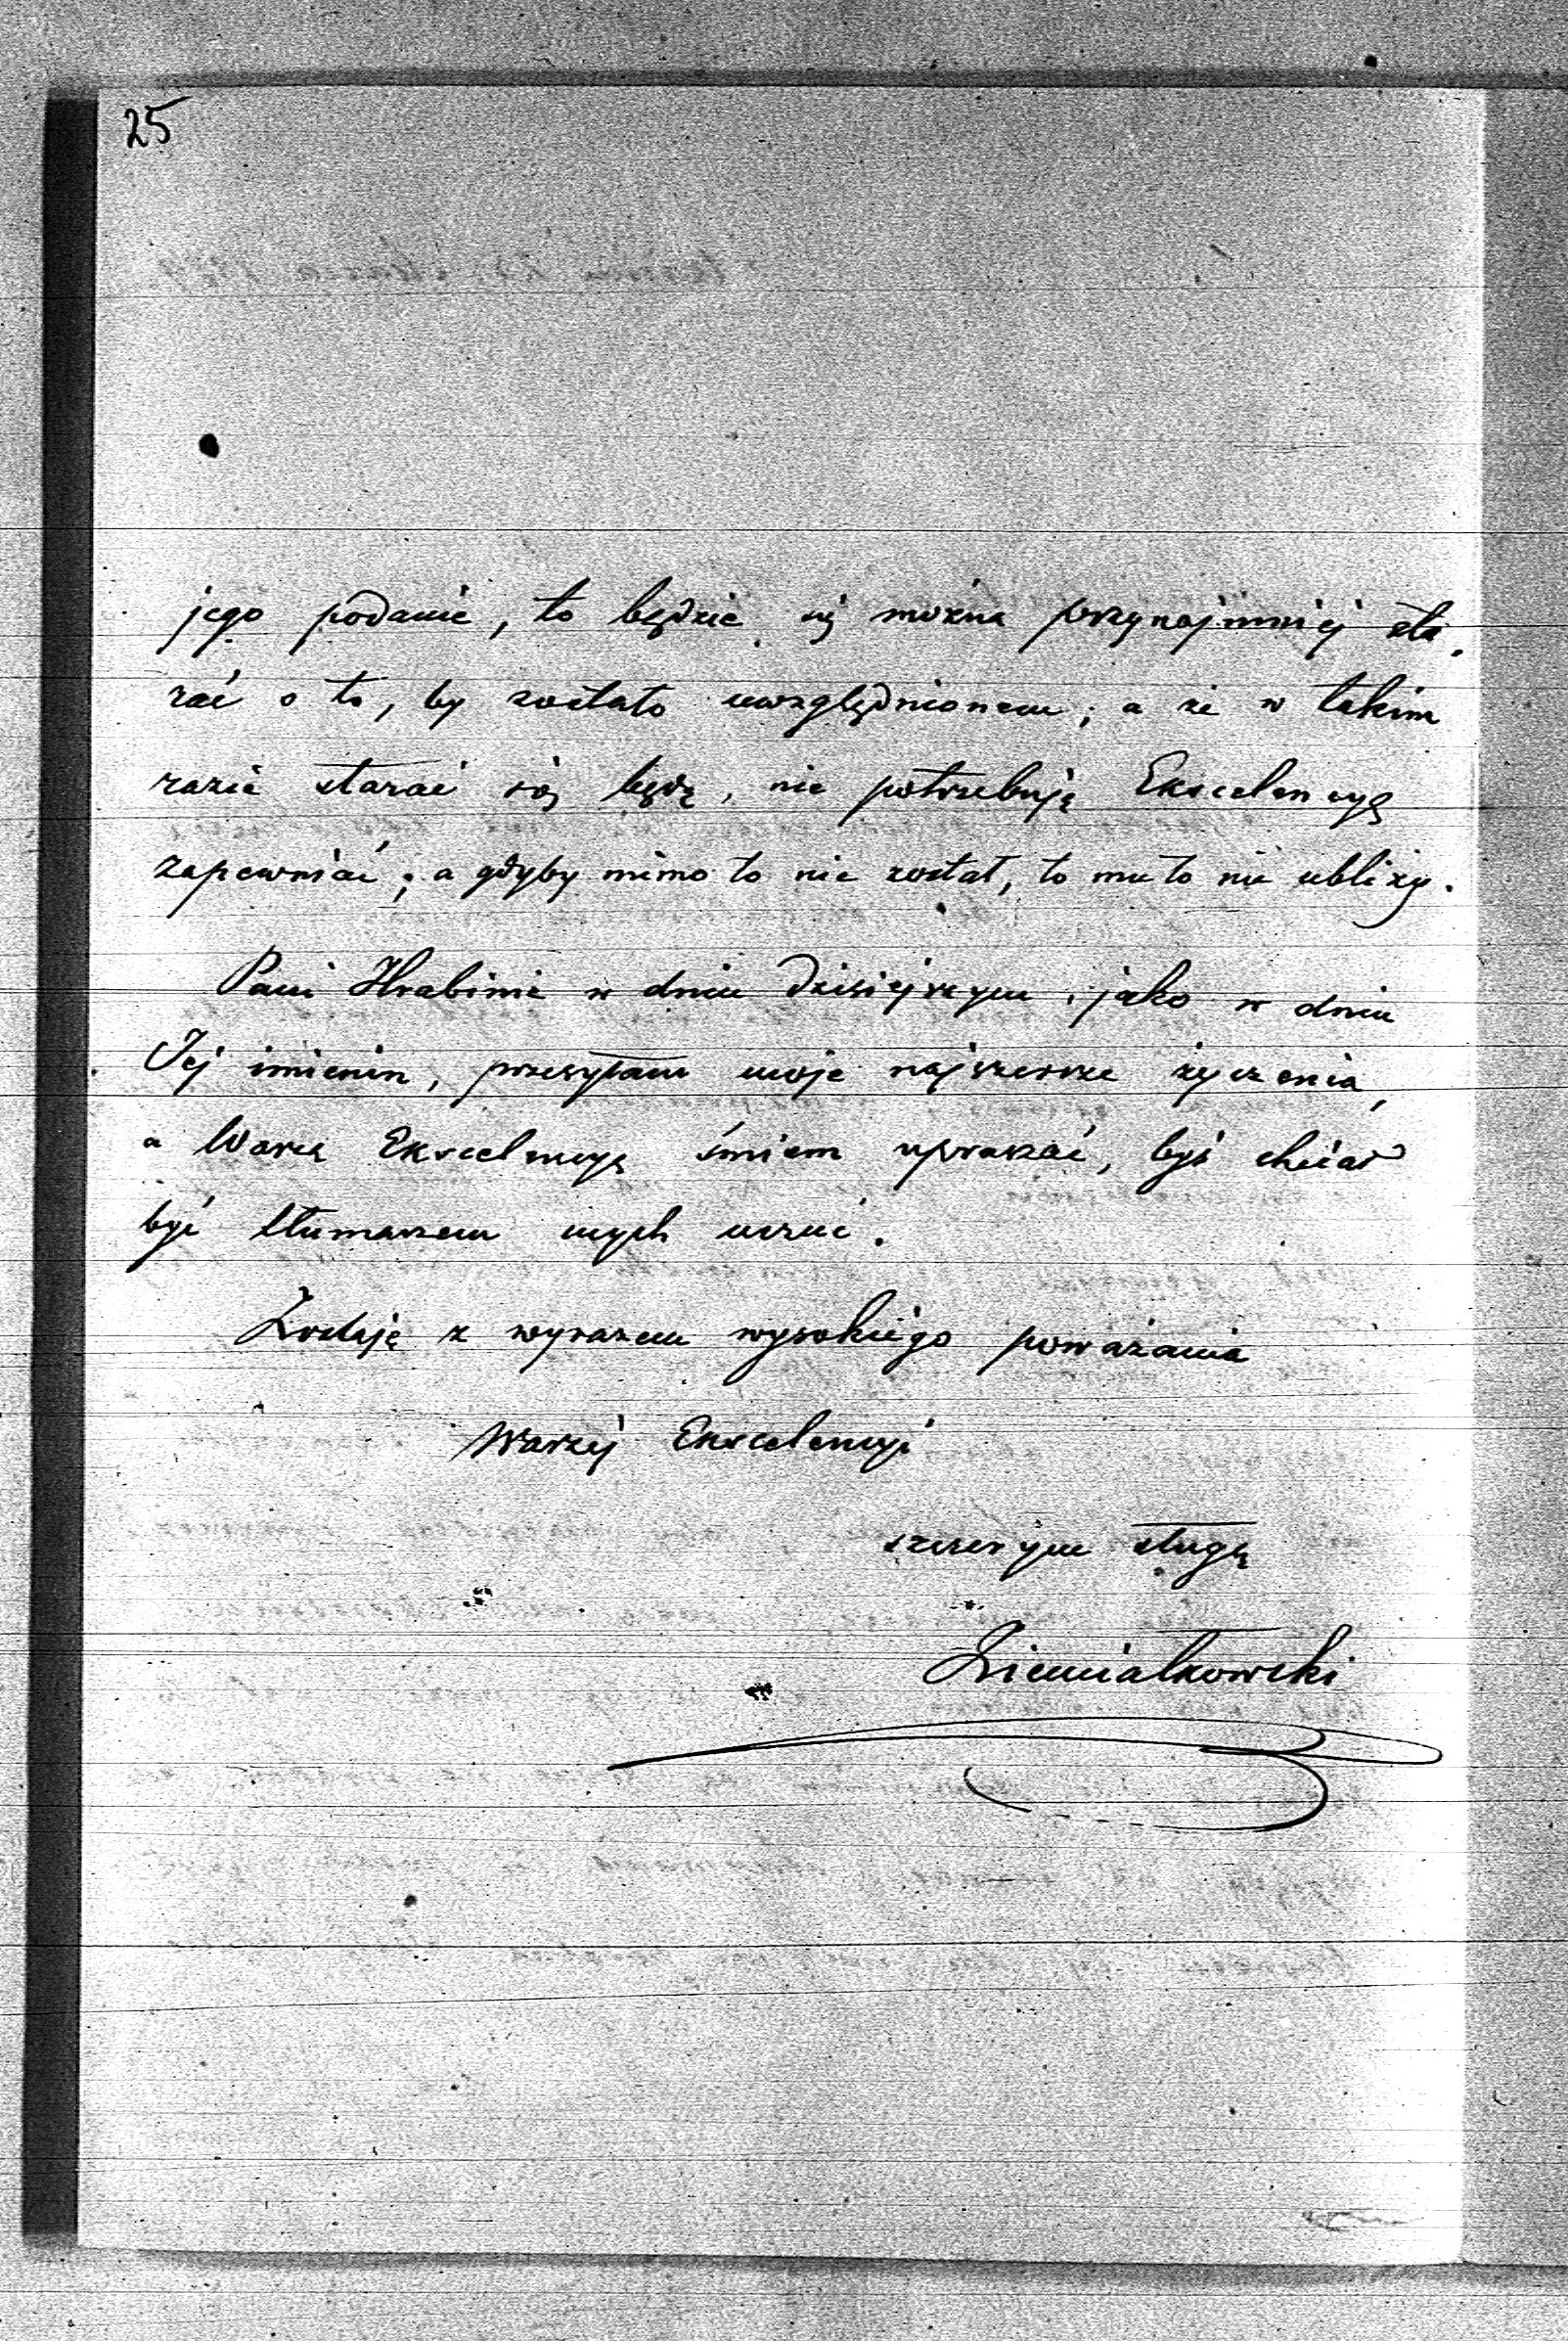 25
jego podanie, to będzie się można przynajmniej sta-
rać o to, by zostało uwzględnionem; a że w takim
razie starać się będę, nie potrzebuję Ekscelencyę
zapewniać; a gdyby mimo to nie został, to mu to nie ubliży.
Pani Hrabinie w dniu dzisiejszym, jako w dniu
Jej imienin, przesyłam moje najszczersze życzenia,
a Waszą Ekscelencyę śmiem upraszać, byś chciał
być tłumaczem mych uczuć.
Zostaję z wyrazem wysokiego poważania
Waszej Ekscelencyi
szczerym sługą
Ziemiałkowski